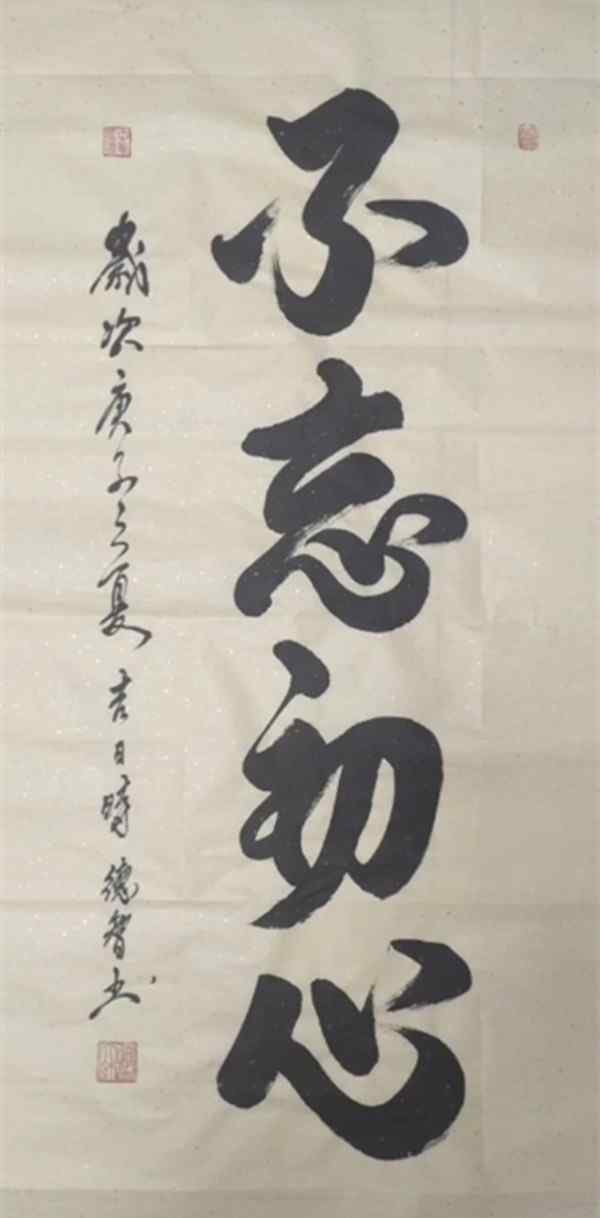 不忘初心
歲次庚子之夏吉日時德智书